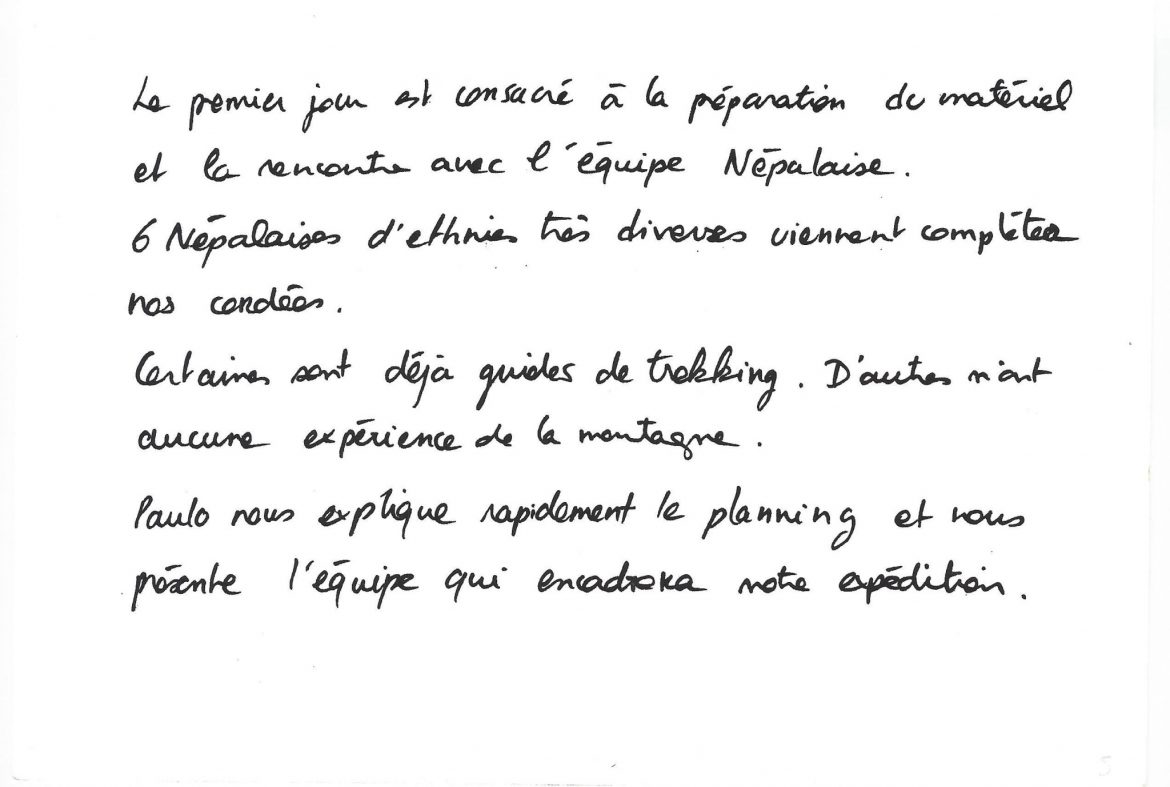 Le premier jour est consacré à la préparation du matériel
et la rencontre avec l'équipe Népalaise.
6 Népalaises d'ethnies très diverses viennent compléter
nos cordées.
Certaines sont déjà guides de trekking. D'autres n'ont
aucune expérience de la montagne.
Paulo nous explique rapidement le planning et nous
présente l'équipe qui encadrera notre expédition.
5